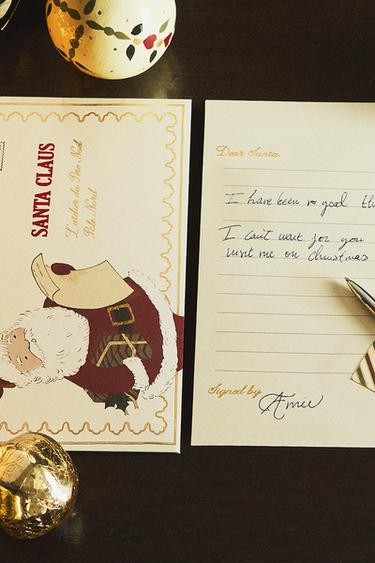 SANTA CLAUS
L'atelier du Père Noël
Pôle Nord
Dear Santa,
I have been so good
I can't wait for you
visit me on Christmas
Signed by
Amie